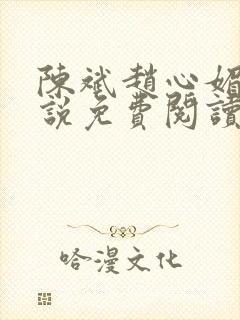 陳斌趙心媚
說免費閱讀
哈漫文化